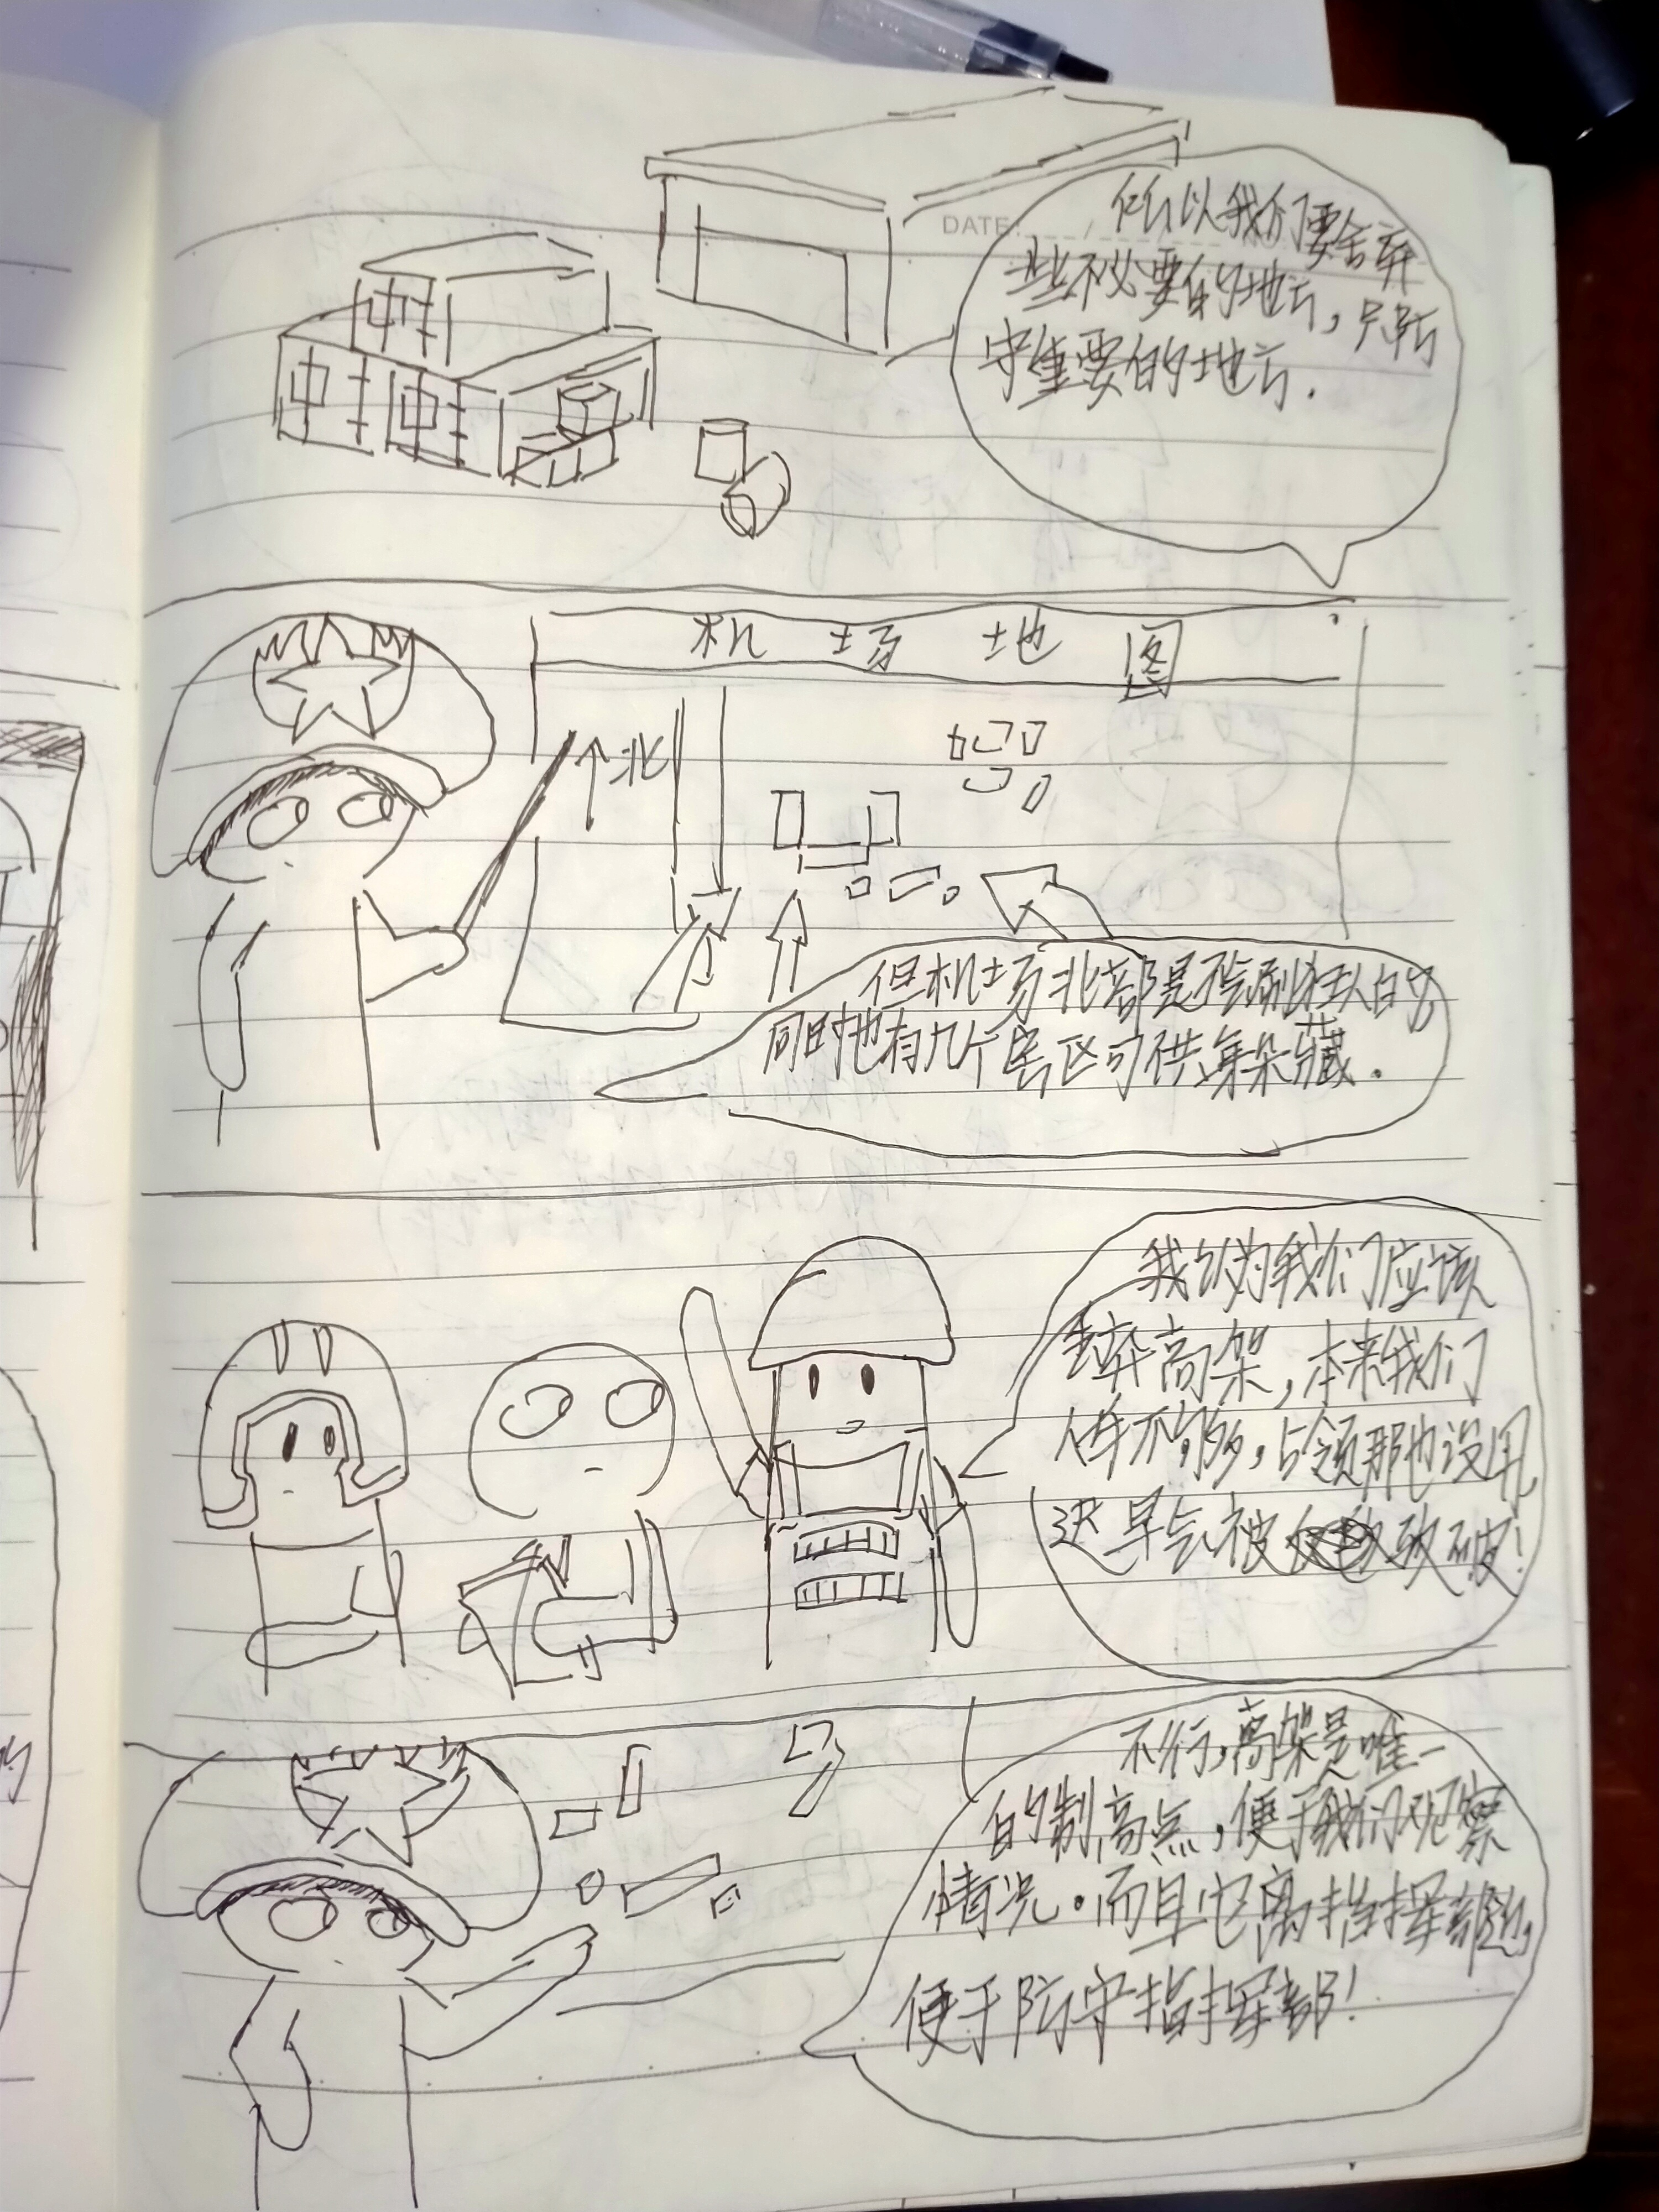 DATE:
所以我们要舍弃
些不必要的地方，只防
守重要的地方.
机场地图
↑北
但机场北部是不会刷狂人的
同时也有几个房区可供躲藏.
我认为我们应该
舍弃高架，本来我们
人手不够多，占领那也没用，
迟早会被攻破！
不行，高架是唯一
的制高点，便于我们观察
情况。而且它离指挥部近，
便于防守指挥部！